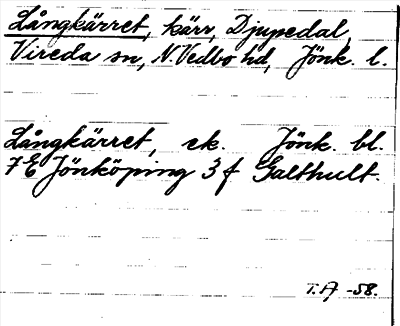 Långkärret, kärr, Djupedal,
Vireda sn, N. Vedbo hd, Jönk. l.
Långkärret, ek. Jönk. bl.
7E Jönköping 3 f Galthult.
T.A -58.